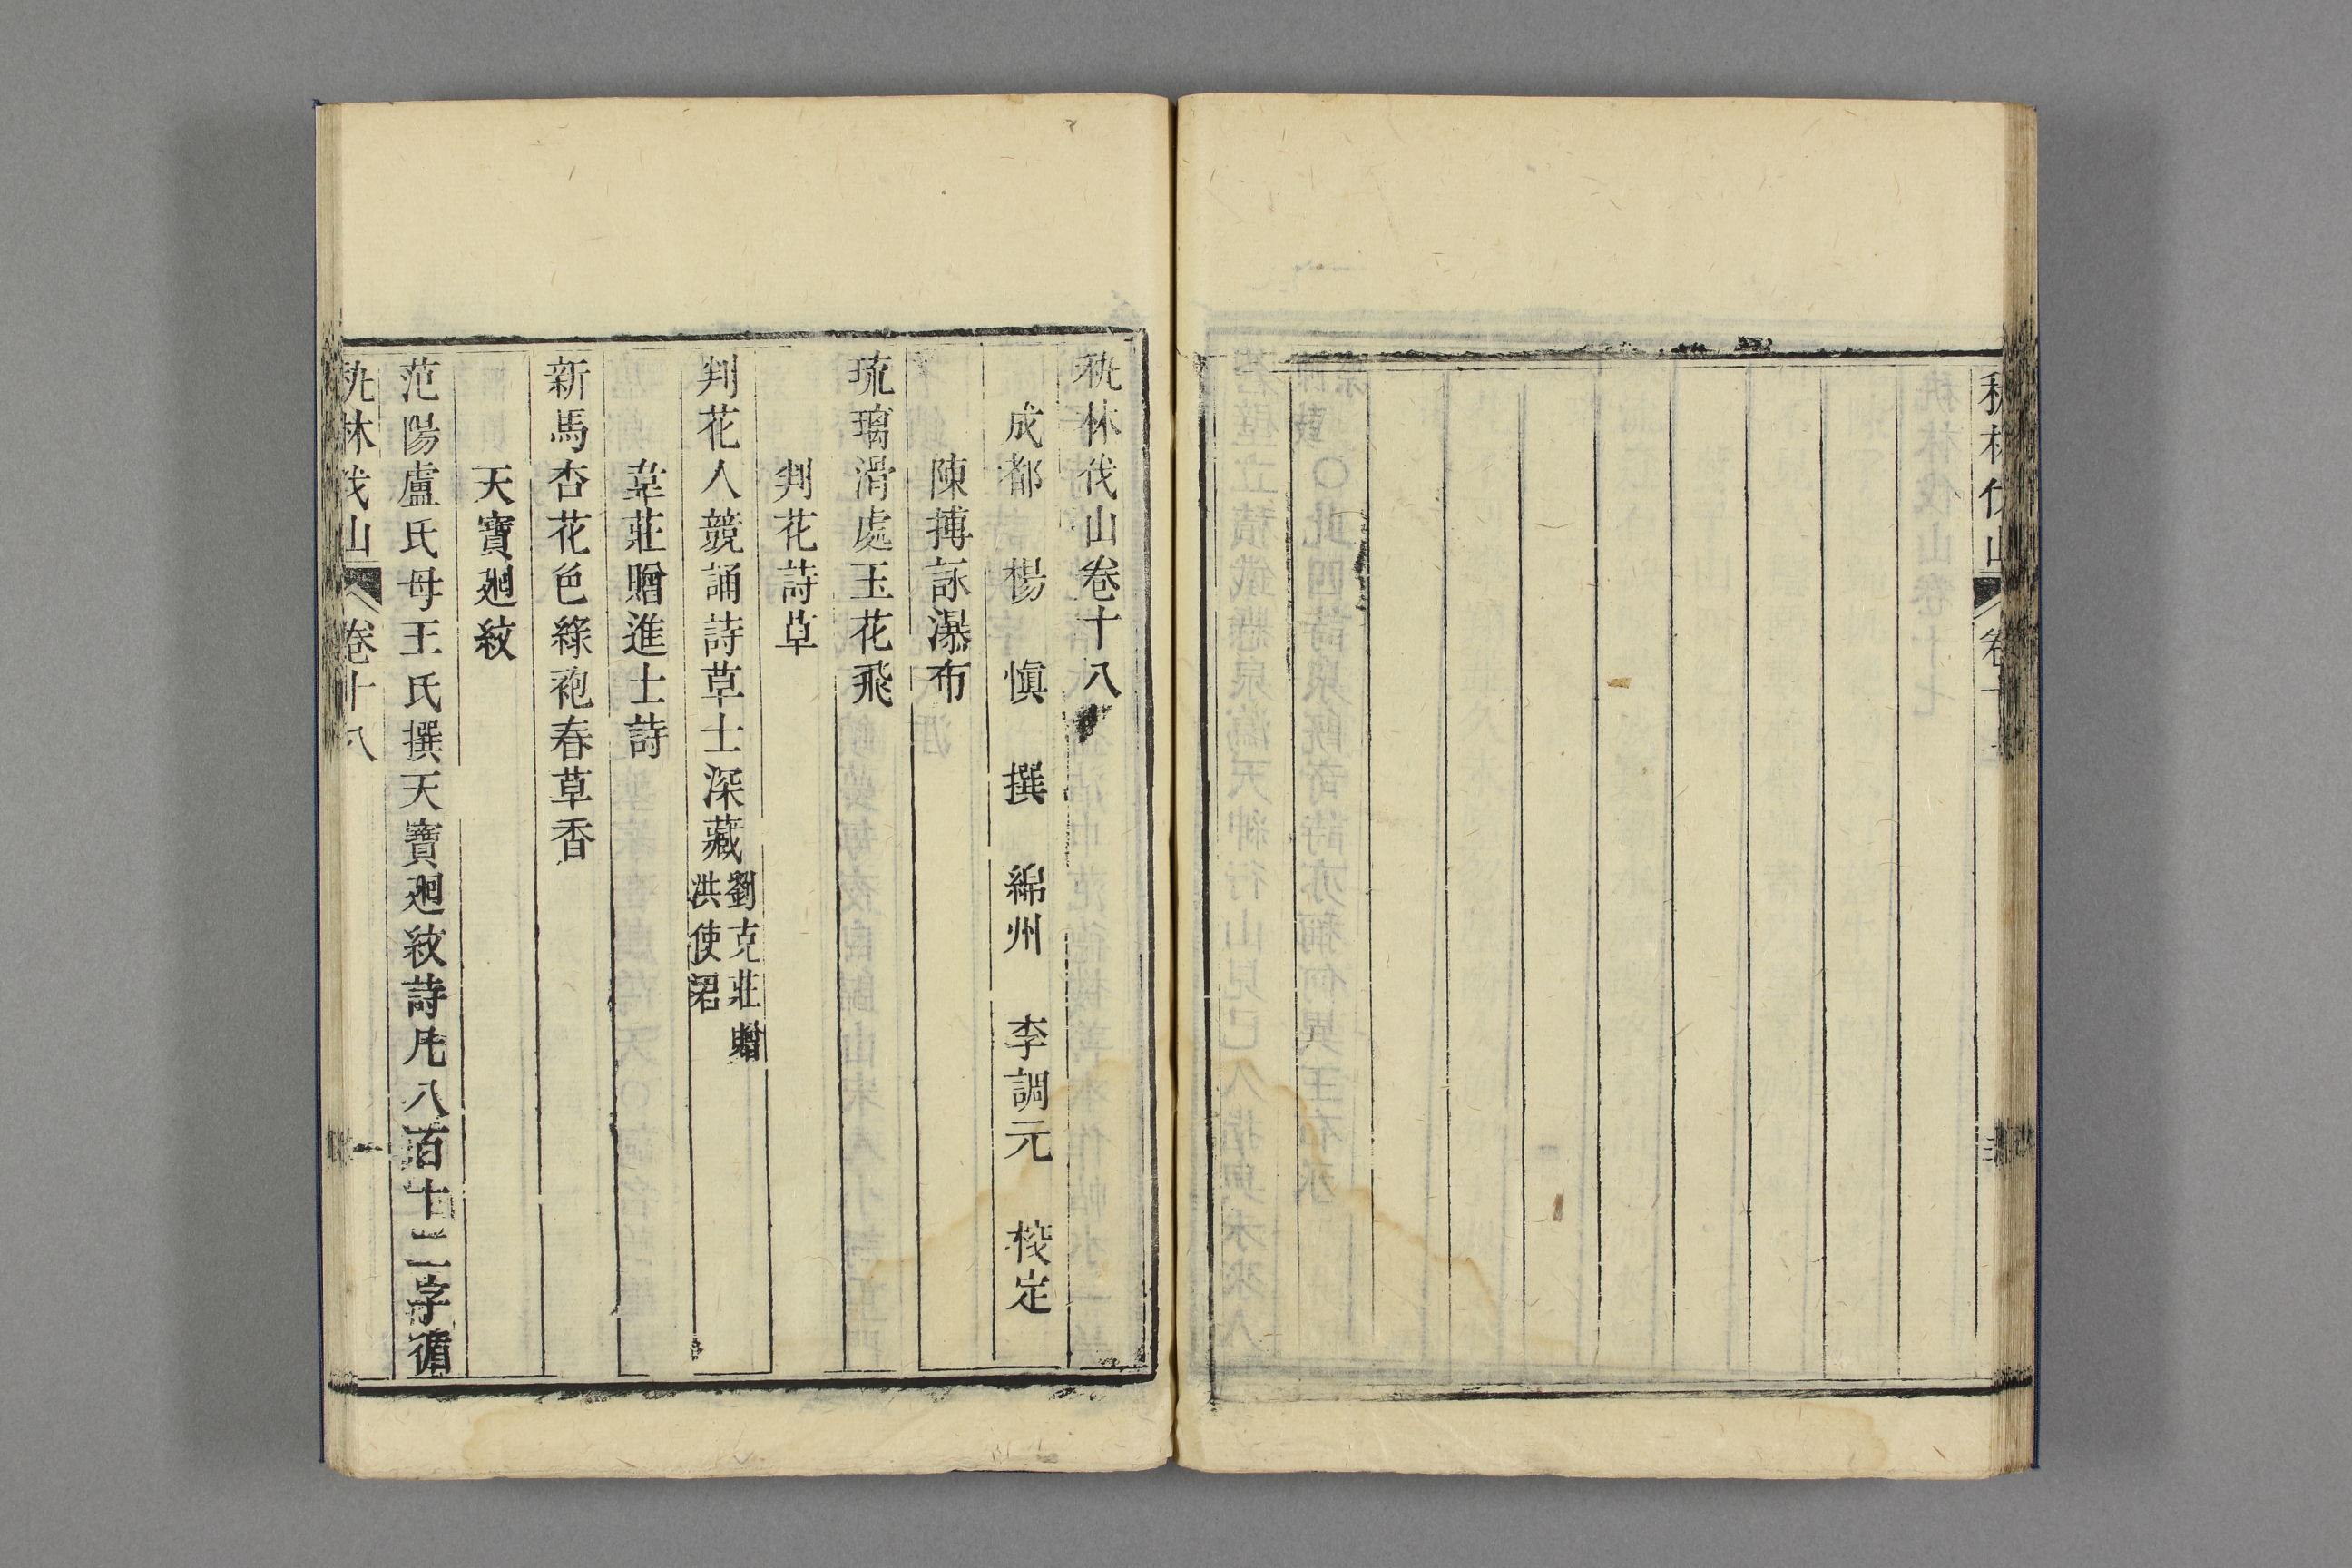 秇林伐山卷十八
成都 楊 愼 撰 綿州 李調元 挍定
陳摶詠瀑布
琉璃滑處玉花飛
判花詩草
判花人競誦詩草士深藏劉克莊贈洪使君
韋莊贈進士詩
新馬杏花色綠袍春草香
天寶廻紋
范陽盧氏母王氏撰天寶廻紋詩凡八百十二字循
秇林伐山 卷十八 一